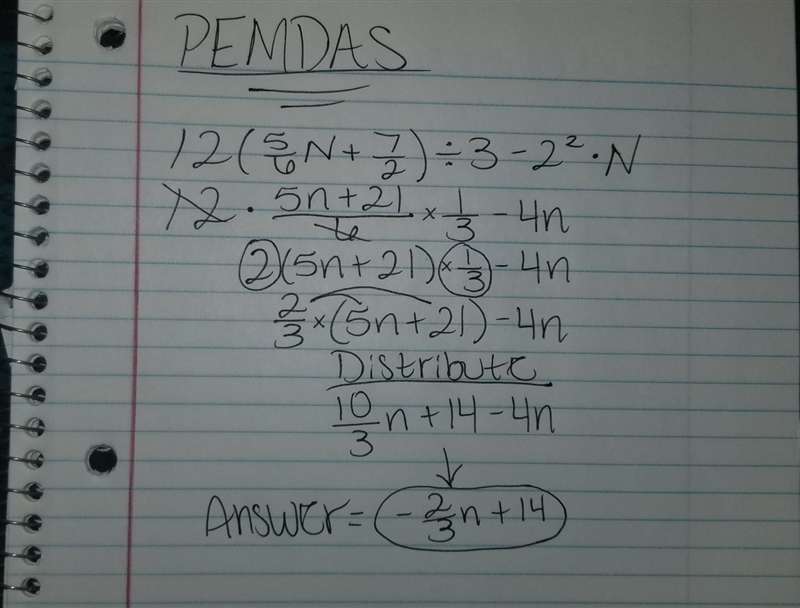 PEMDAS
12(5/6 N + 7/2) ÷ 3 - 2² · N
12 · 5n+21/6 × 1/3 - 4n
2(5n+21) × 1/3 - 4n
2/3 × (5n+21) - 4n
Distribute
10/3 n + 14 - 4n
Answer = -2/3 n + 14